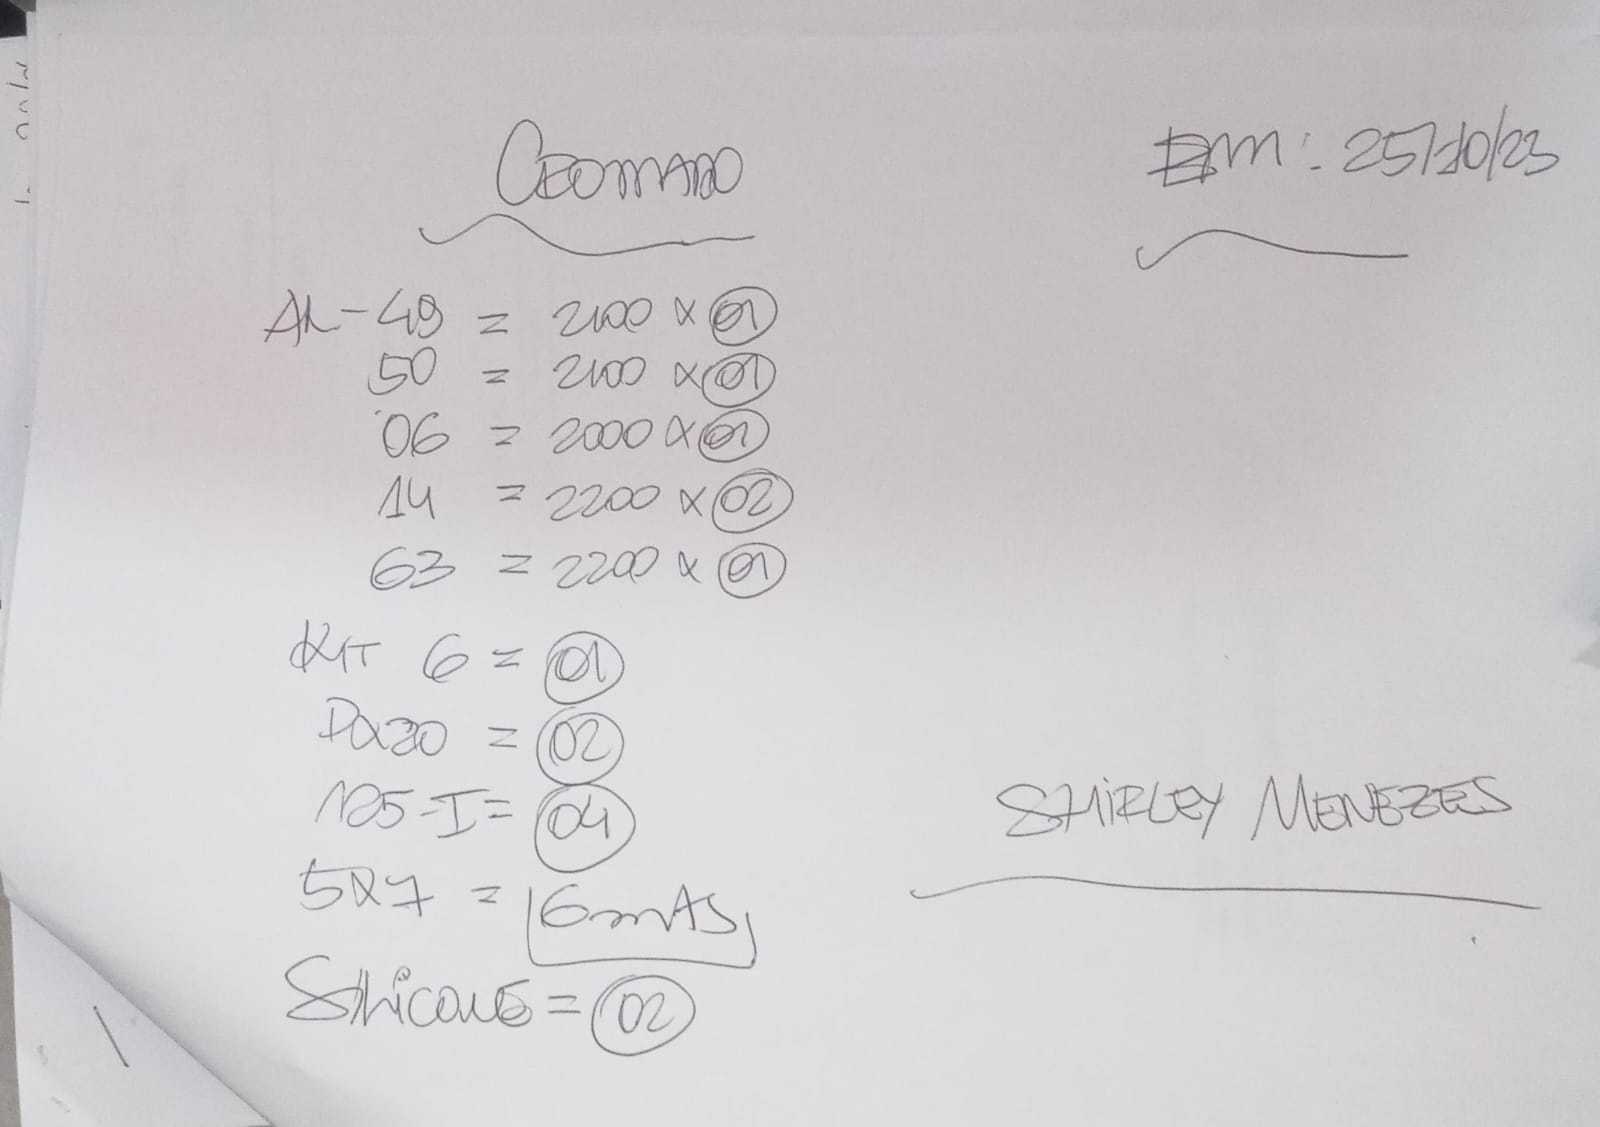 CROMADO
Em: 25/10/23
AL-49 = 2100 x 01
50 = 2100 x 01
06 = 2000 x 01
14 = 2200 x 02
63 = 2200 x 01
KIT 6 = 01
= 02
125-I = 04
5x7 = 6mts
SILICONE = 02
SHIRLEY MENEZES